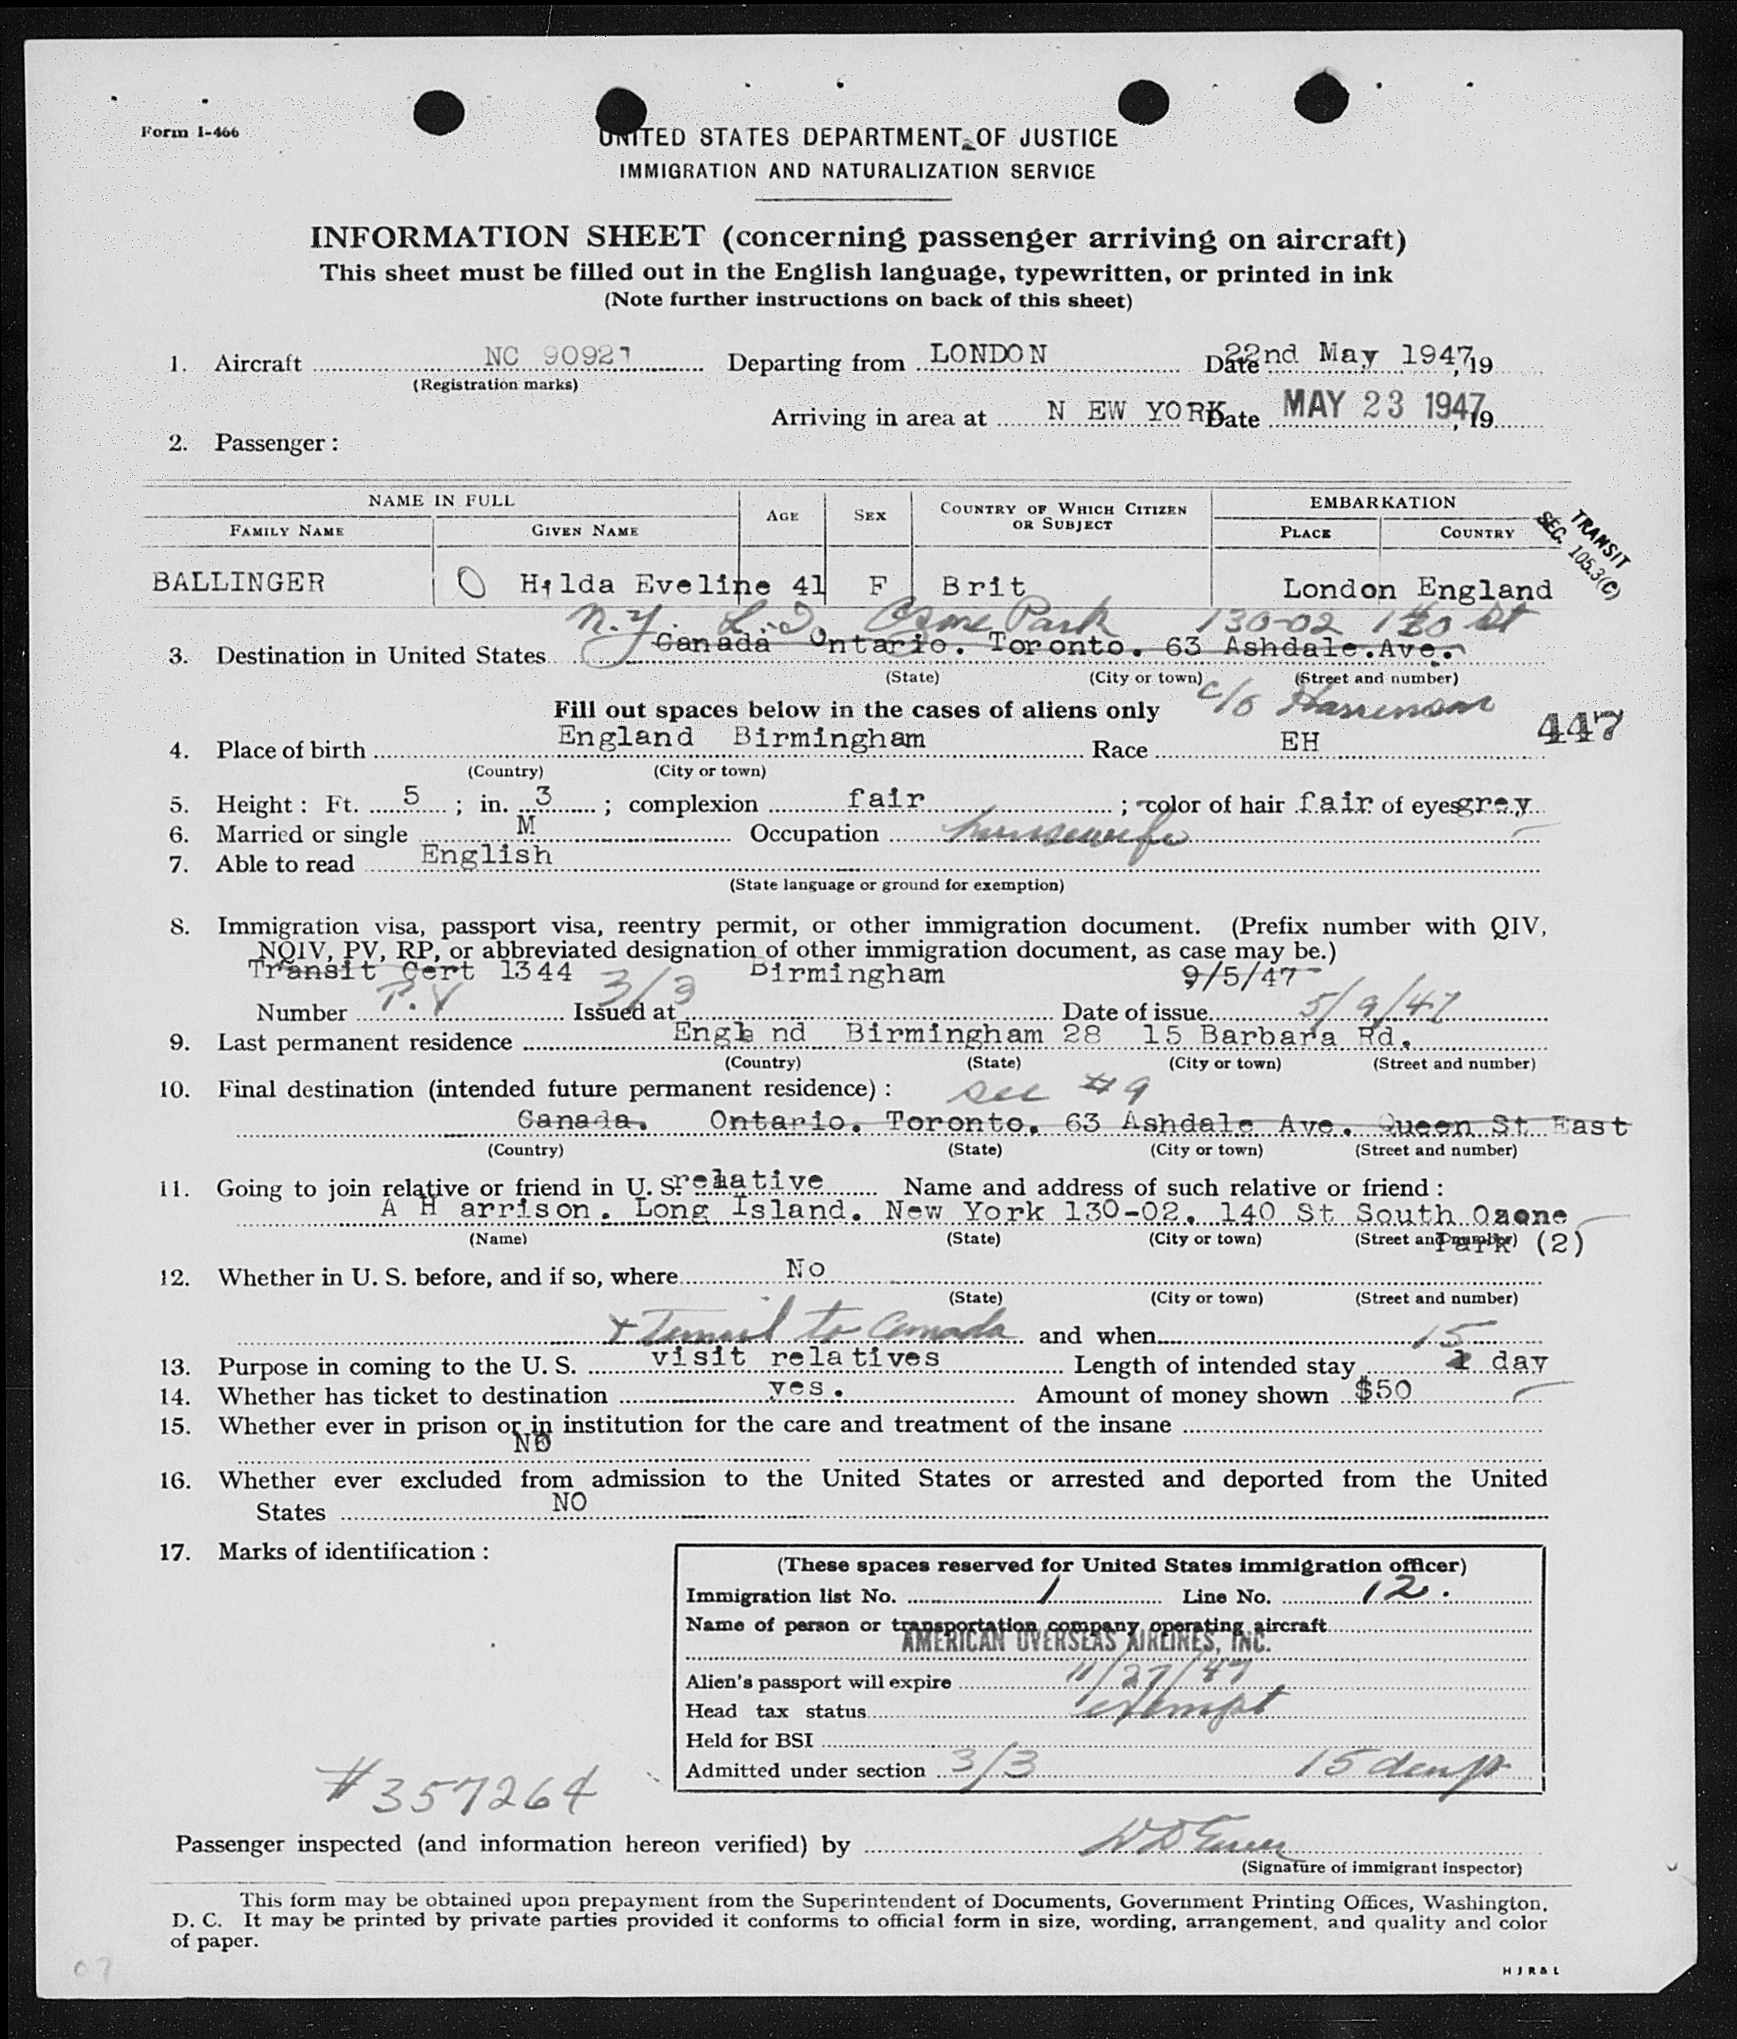 Form I-466
UNITED STATES DEPARTMENT OF JUSTICE
IMMIGRATION AND NATURALIZATION SERVICE
INFORMATION SHEET (concerning passenger arriving on aircraft)
This sheet must be filled out in the English language, typewritten, or printed in ink
(Note further instructions on back of this sheet)
1. Aircraft NC 90921 Departing from LONDON Date 22nd May 1947, 19
(Registration marks)
Arriving in area at N EW YORK Date MAY 23 1947, 19
2. Passenger:
NAME IN FULL AGE SEX COUNTRY OF WHICH CITIZEN OR SUBJECT EMBARKATION
FAMILY NAME GIVEN NAME PLACE COUNTRY
TRANSIT
SEC. 105.3(C)
BALLINGER Hilda Eveline 41 F Brit London England
N.Y. L.I. Ozone Park 130-02 140 St
3. Destination in United States Canada Ontario. Toronto. 63 Ashdale.Ave.
(State) (City or town) (Street and number)
c/o Harrison
Fill out spaces below in the cases of aliens only
447
4. Place of birth England Birmingham Race EH
(Country) (City or town)
5. Height: Ft. 5; in. 3; complexion fair; color of hair fair of eyes grey
6. Married or single M Occupation housewife
7. Able to read English
(State language or ground for exemption)
8. Immigration visa, passport visa, reentry permit, or other immigration document. (Prefix number with QIV,
NQIV, PV, RP, or abbreviated designation of other immigration document, as case may be.)
Transit Cert 1344 Birmingham 9/5/47
Number P.V 3/3 Issued at Date of issue 5/9/47
9. Last permanent residence Engla nd Birmingham 28 15 Barbara Rd.
(Country) (State) (City or town) (Street and number)
10. Final destination (intended future permanent residence): see #9
Canada. Ontario. Toronto. 63 Ashdale Ave. Queen St East
(Country) (State) (City or town) (Street and number)
11. Going to join relative or friend in U. S. relative Name and address of such relative or friend:
A H arrison. Long Island. New York 130-02. 140 St South Ozone
(Name) (State) (City or town) (Street and number) Park (2)
12. Whether in U. S. before, and if so, where No
(State) (City or town) (Street and number)
+ Transit to Canada and when 15
13. Purpose in coming to the U. S. visit relatives Length of intended stay 1 day
14. Whether has ticket to destination yes. Amount of money shown $50
15. Whether ever in prison or in institution for the care and treatment of the insane
NO
16. Whether ever excluded from admission to the United States or arrested and deported from the United
States NO
17. Marks of identification:
(These spaces reserved for United States immigration officer)
Immigration list No. 1 Line No. 12.
Name of person or transportation company operating aircraft
AMERICAN OVERSEAS AIRLINES, INC.
Alien's passport will expire 11/27/47
Head tax status exempt
Held for BSI
Admitted under section 3/3 15 days
#357264
Passenger inspected (and information hereon verified) by
(Signature of immigrant inspector)
This form may be obtained upon prepayment from the Superintendent of Documents, Government Printing Offices, Washington,
D. C. It may be printed by private parties provided it conforms to official form in size, wording, arrangement, and quality and color
of paper.
07
HJR&L